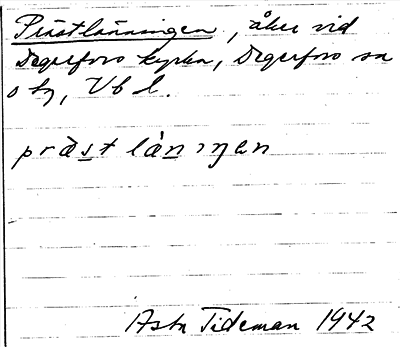 Prästlänningen, åker vid
Degerfors kyrka, Degerfors sn
o by, Vb l.
prä̀st lä̀nıŋen
Asta Tideman 1942